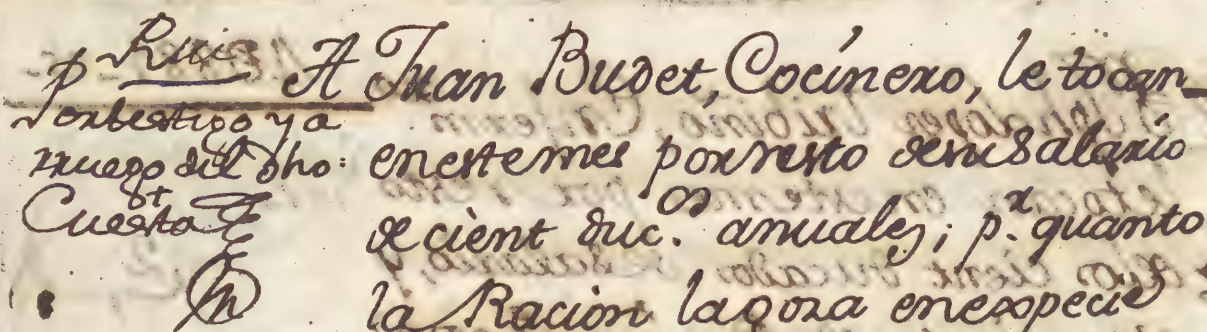 p Ruiz
Por testigo y a
ruego del dho:
Cuesta
A Juan Budet, Cocinero, le tocan
en este mes por resto de su Salario
de cient duc.os anuales; p.r quanto
la Racion la goza en expecie